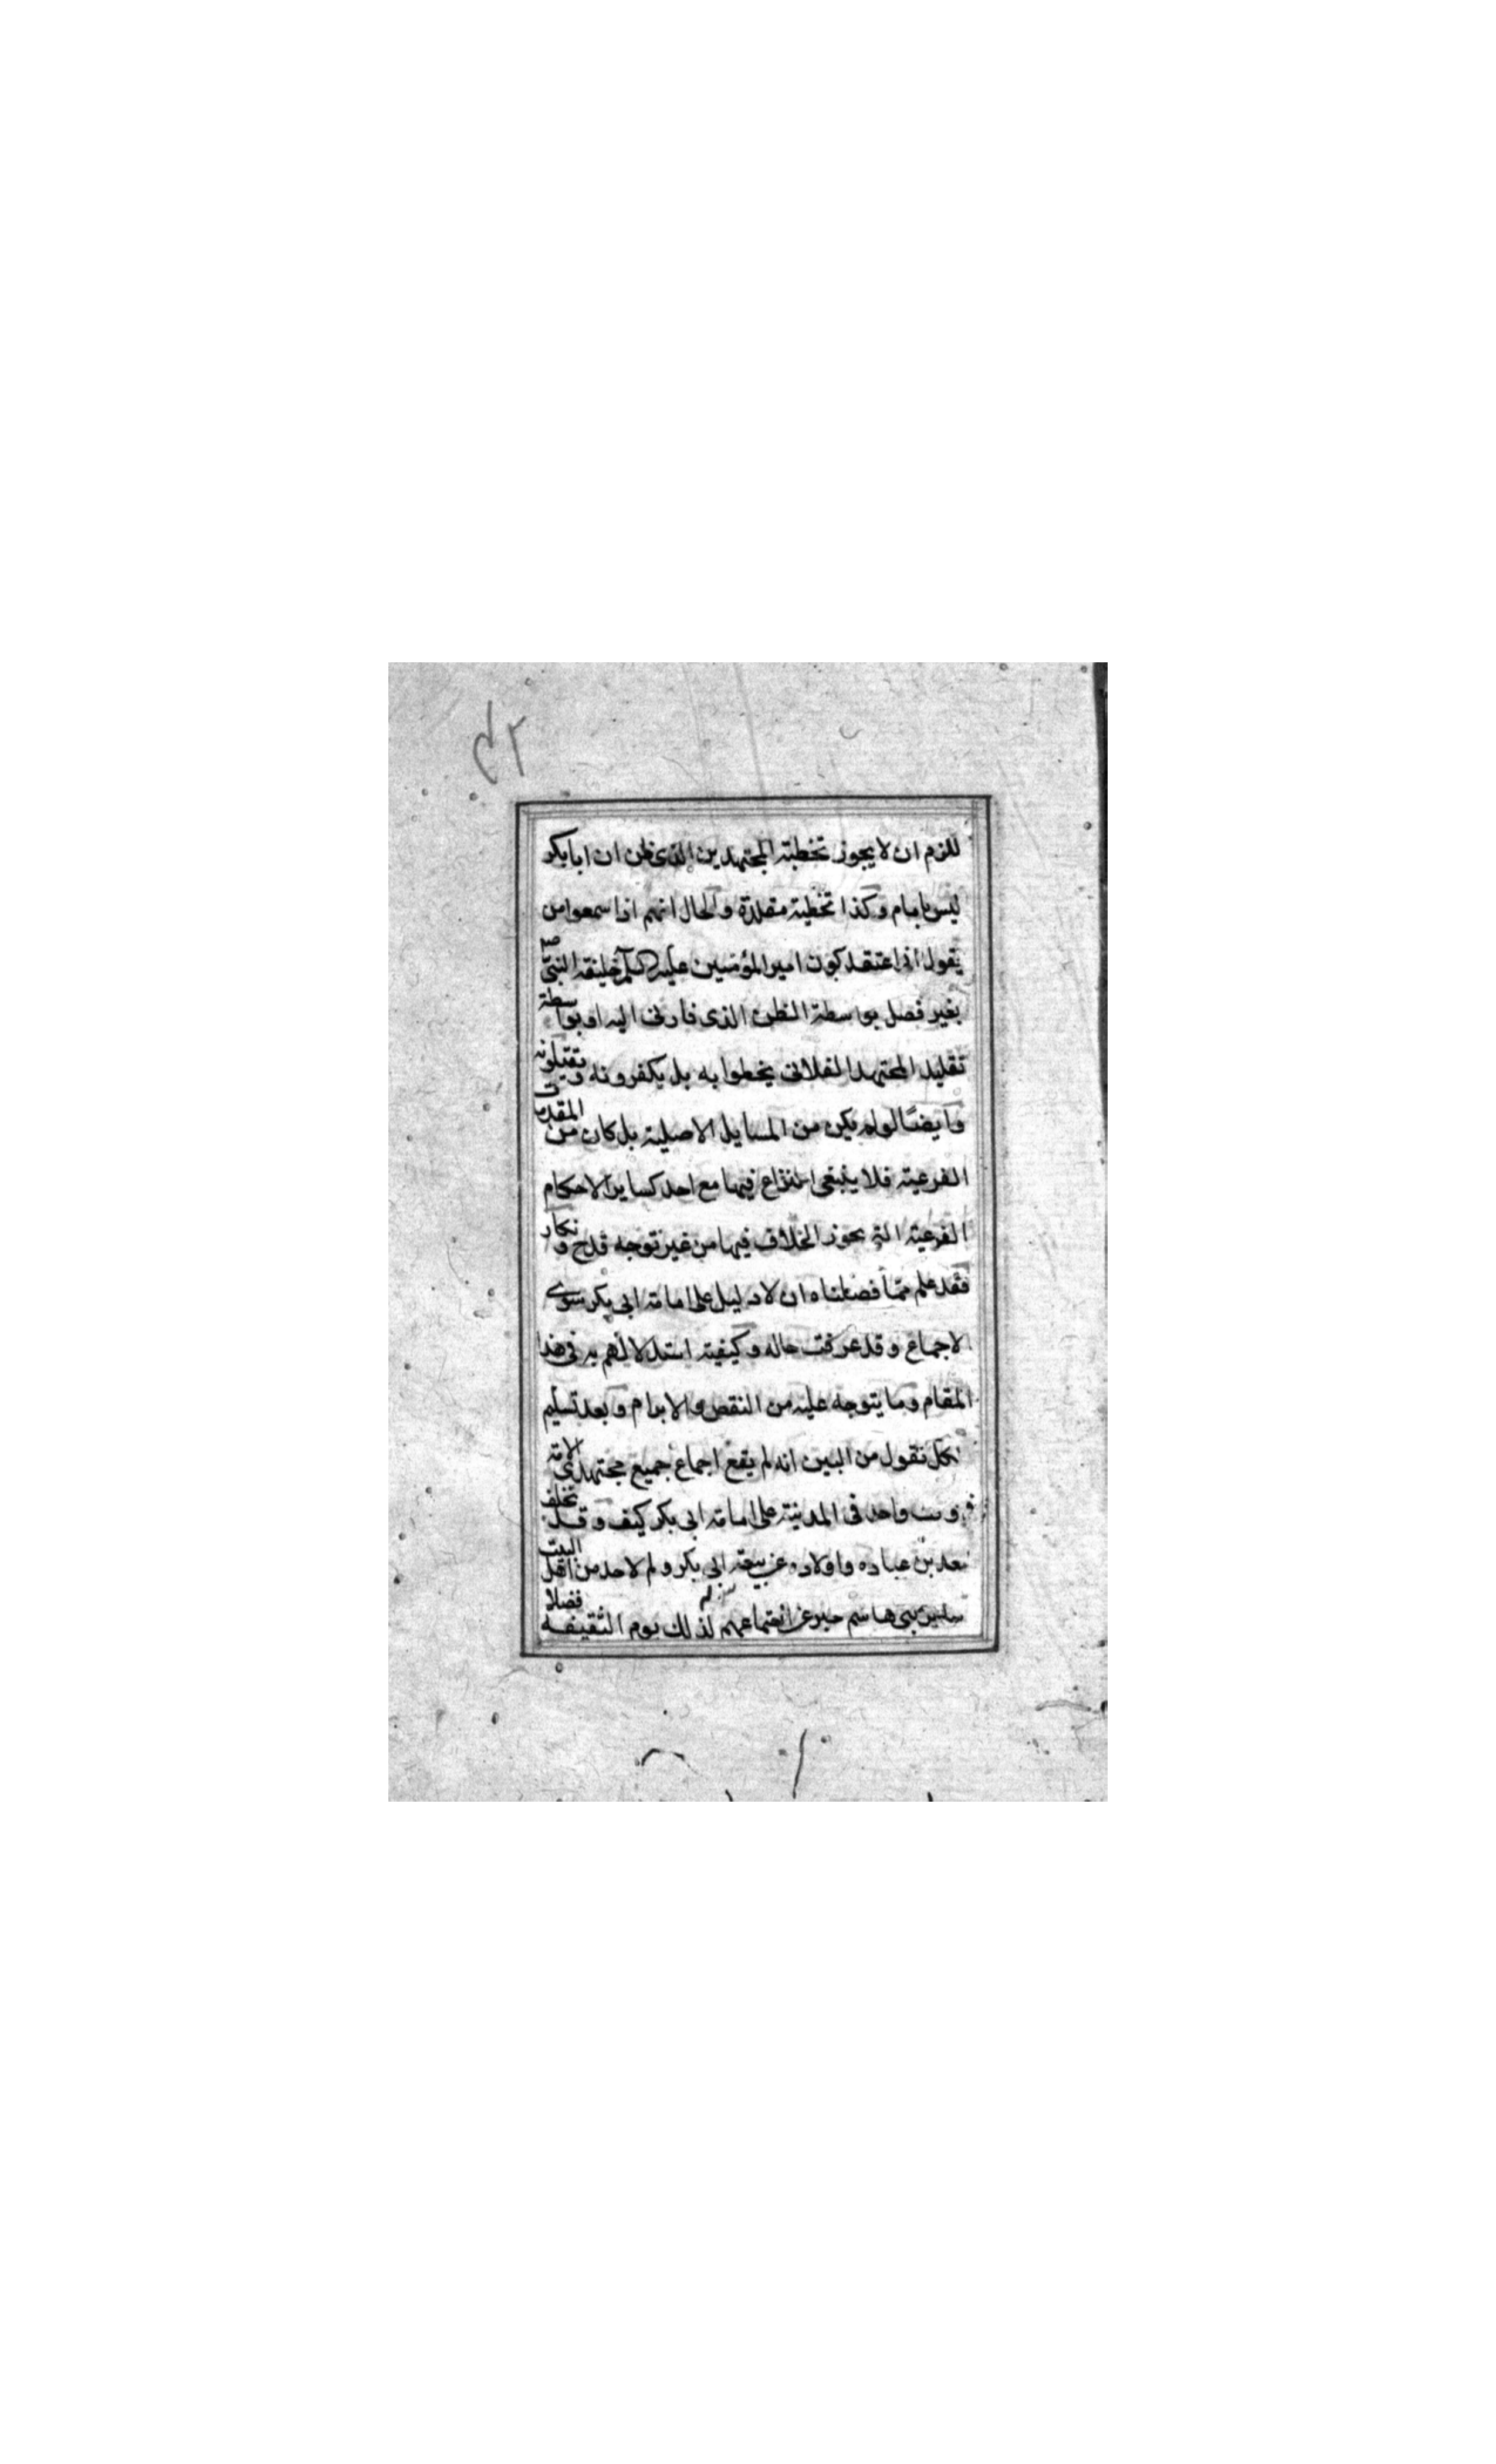 للزم ان لا يجوز تخطية المجتهدين الذى ظن ان ابا بكر
ليس بامام وكذا تخطية مقلدة والحال انهم اذا سمعوا من
يقول انا اعتقد كون امير المؤمنين عليه السلم خليفة النبى ص
بغير فصل بواسطة الظن الذى فادنى اليه او بواسطة
تقليد المجتهد الفلانى يخطوا به بل يكفرونه ويقتلونه
وايضا لو لم يكن من المسايل الاصلية بل كان من المقدمات
الفرعية فلا ينبغى النزاع فيها مع احد كساير الاحكام
الفرعية التى يجوز الخلاف فيها من غير توجه قدح ونكار
فقد علم مما فصلناه ان لا دليل على امامة ابى بكر سوى
الاجماع وقد عرفت حاله وكيفية استدلالهم به فى هذا
المقام وما يتوجه عليه من النقض والابرام وبعد تسليم
الكل نقول من البين انه لم يقع اجماع جميع مجتهدى الامة
فى وقت واحد فى المدينة على امامة ابى بكر كيف وقد تخلف
سعد بن عباده واولاده عن بيعة ابى بكر ولم لاحد من اهل البيت
بنى هاشم خبر عن اجتماعهم لذلك يوم الثقيفة فضلا